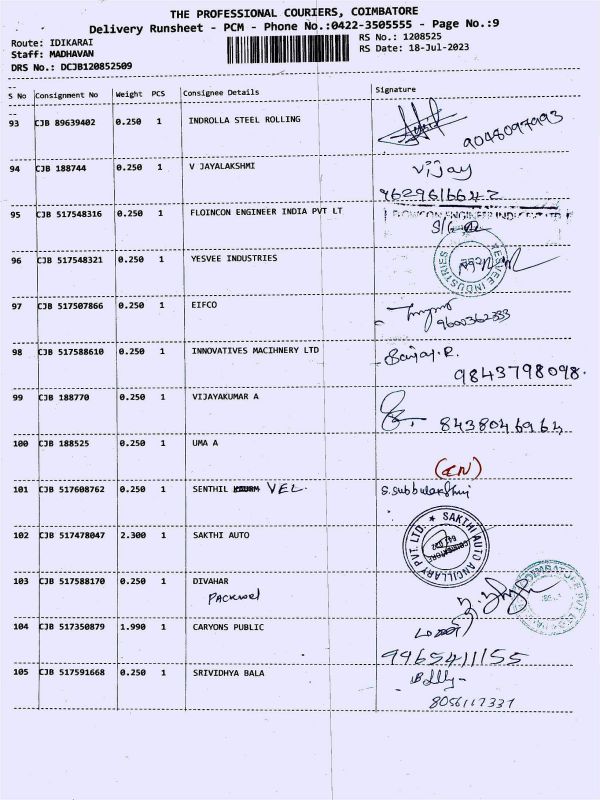 THE PROFESSIONAL COURIERS, COIMBATORE
Delivery Runsheet - PCM - Phone No.:0422-3505555 - Page No.:9
Route: IDIKARAI
RS No.: 1208525
Staff: MADHAVAN
RS Date: 18-Jul-2023
DRS No.: DCJB120852509
S No Consignment No Weight PCS Consignee Details Signature
93 CJB 89639402 0.250 1 INDROLLA STEEL ROLLING
9048097993
94 CJB 188744 0.250 1 V JAYALAKSHMI Vijay
9629616642
95 CJB 517548316 0.250 1 FLOINCON ENGINEER INDIA PVT LT
96 CJB 517548321 0.250 1 YESVEE INDUSTRIES YESVEE INDUSTRIES
97 CJB 517507866 0.250 1 EIFCO
9600362333
98 CJB 517588610 0.250 1 INNOVATIVES MACIHNERY LTD Sanjay.R.
9843798098.
99 CJB 188770 0.250 1 VIJAYAKUMAR A
8438046964
100 CJB 188525 0.250 1 UMA A
(CN)
101 CJB 517608762 0.250 1 SENTHIL VEL S.Subbulakshmi
102 CJB 517478047 2.300 1 SAKTHI AUTO SAKTHI AUTO ANCILLARY PVT. LTD. COIMBATORE
103 CJB 517588170 0.250 1 DIVAHAR
104 CJB 517350879 1.990 1 CARYONS PUBLIC
9965411155
105 CJB 517591668 0.250 1 SRIVIDHYA BALA
8056117337